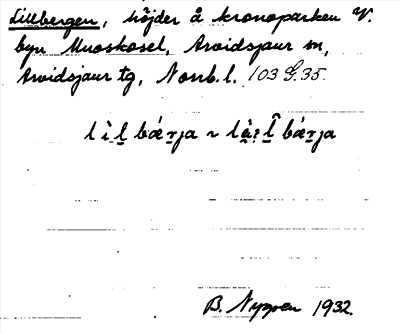 Lillbergen, höjder å kronoparken V.
byn Muoskosel, Arvidsjaur sn,
Arvidsjaur tg, Norrb. l. 103 G. 35.
bǽrja ~ bǽrja
B. Nygren 1932.